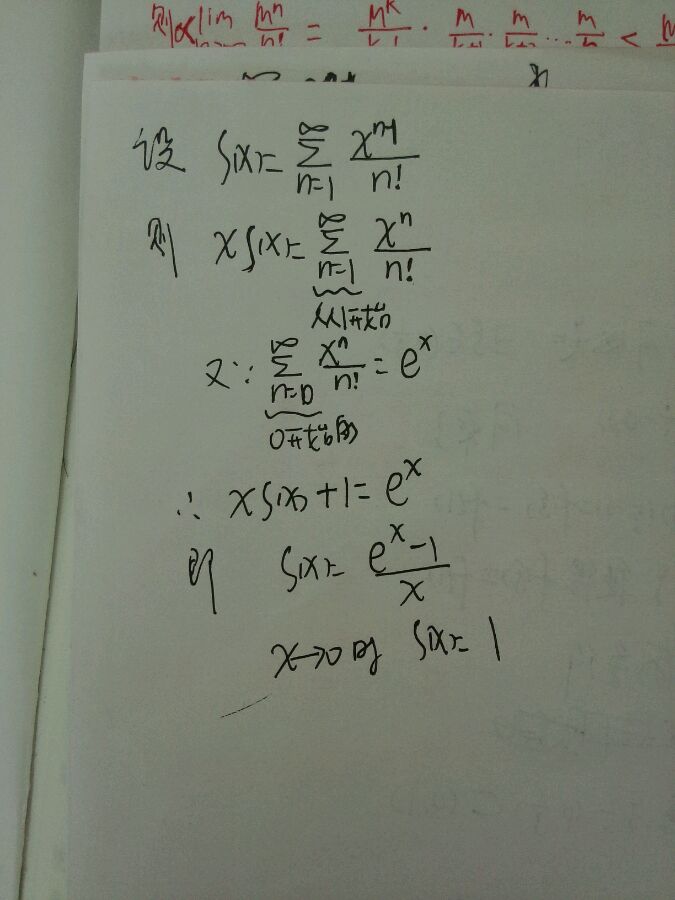 则 lim Mⁿ/n! = Mᵏ/k! · M/k+1 · M/k+2 ... M/n <
设 S(x)= ∑_{n=1}^{∞} xⁿ⁻¹/n!
则 xS(x)= ∑_{n=1}^{∞} xⁿ/n!
从1开始
又∵ ∑_{n=0}^{∞} xⁿ/n! = eˣ
0开始的
∴ xS(x)+1= eˣ
即 S(x)= eˣ-1/x
x→0时 S(x)= 1